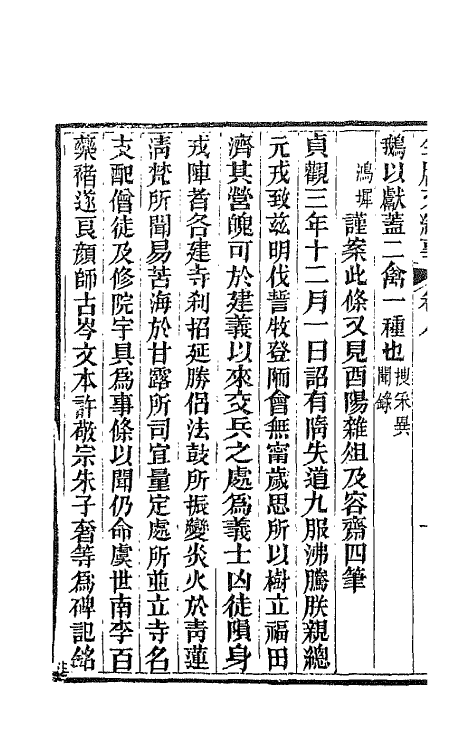 鵝以獻蓋二禽一種也搜采異聞錄
鴻墀謹案此條又見酉陽雜俎及容齋四筆
貞觀三年十二月一日詔有隋失道九服沸騰朕親總
元戎致茲明伐誓牧登陑會無甯歲思所以樹立福田
濟其營魄可於建義以來交兵之處為義士凶徒隕身
戎陣者各建寺刹招延勝侶法鼓所振變炎火於青蓮
清梵所聞易苦海於甘露所司宜量定處所並立寺名
支配僧徒及修院宇具為事條以聞仍命虞世南李百
藥褚遂良顏師古岑文本許敬宗朱子奢等為碑記銘